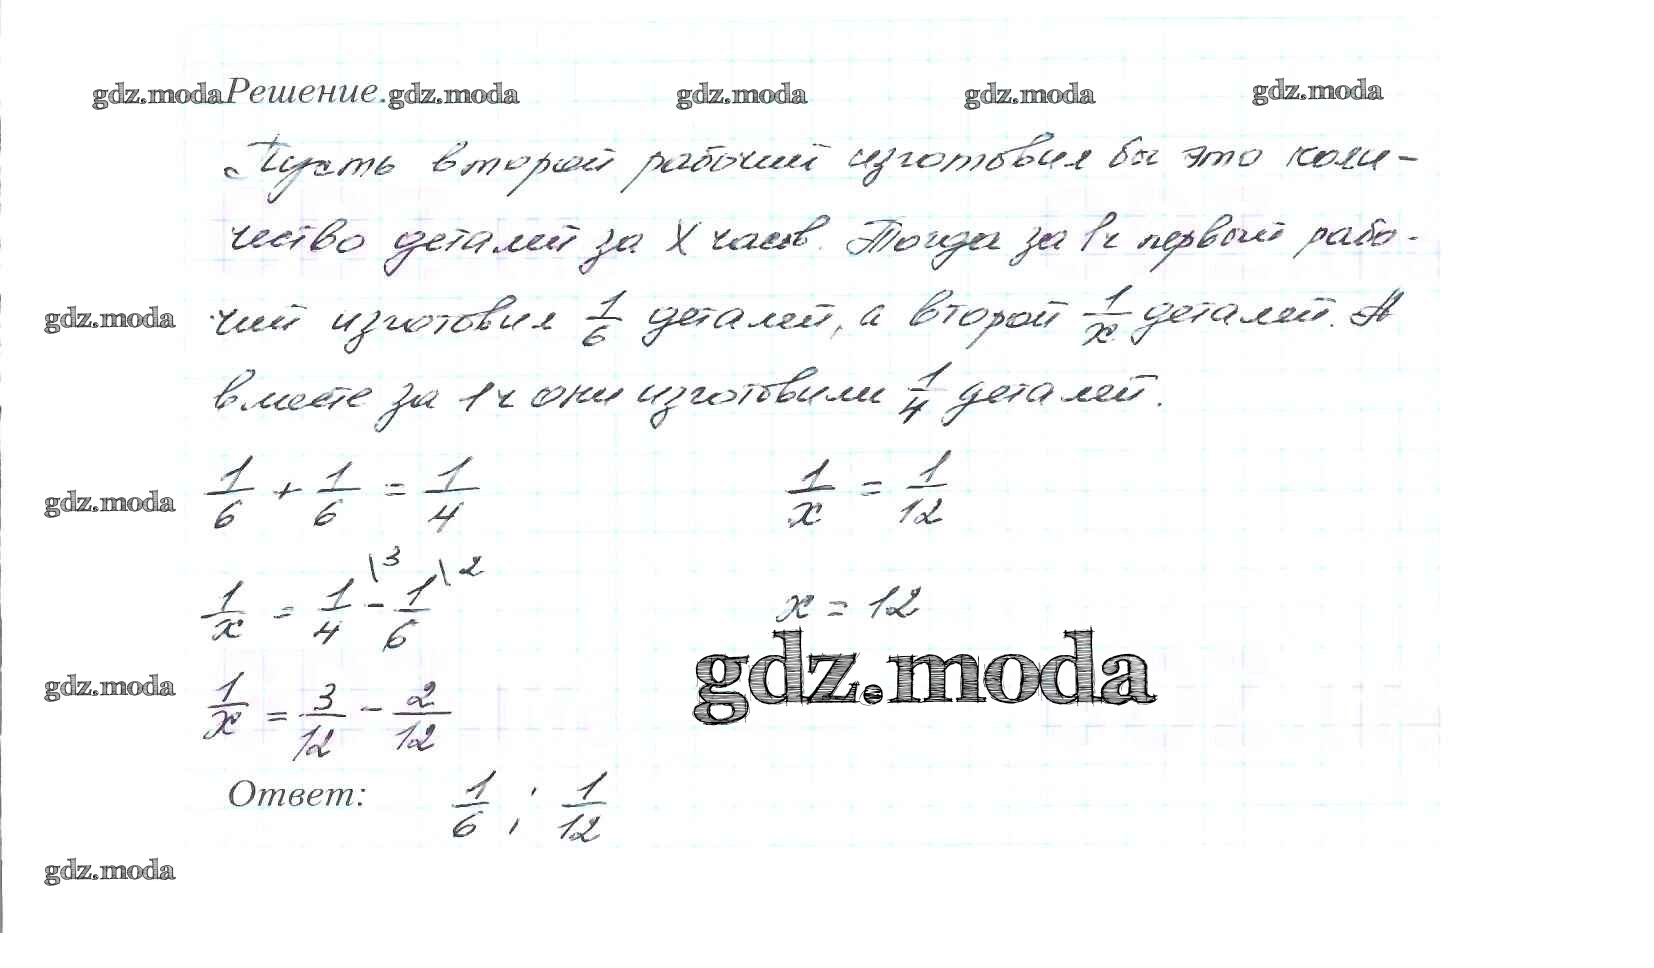 gdz.moda Решение. gdz.moda gdz.moda gdz.moda gdz.moda
Пусть второй рабочий изготовил бы это коли-
чество деталей за X часов. Тогда за 1ч первый рабо-
gdz.moda чий изготовил 1/6 деталей, а второй 1/x деталей. А
вместе за 1ч они изготовили 1/4 деталей.
gdz.moda 1/6 + 1/6 = 1/4 1/x = 1/12
1/x = 1/4 \3 - 1/6 \2 x = 12
gdz.moda
gdz.moda 1/x = 3/12 - 2/12
Ответ: 1/6 ; 1/12
gdz.moda